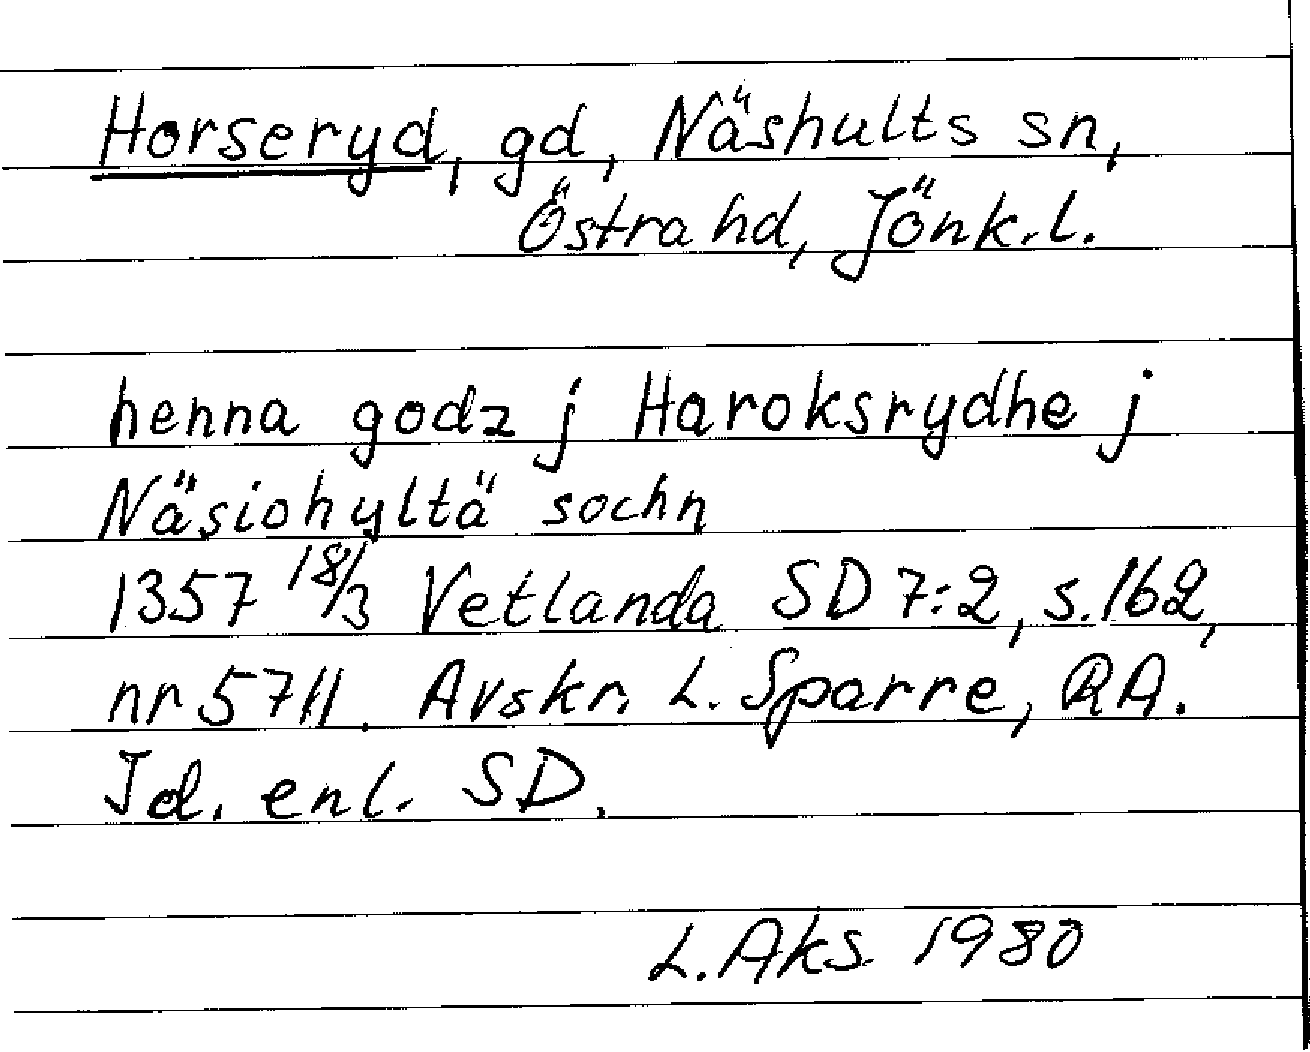 Horseryd, gd, Näshults sn,
Östra hd, Jönk.l.
henna godz j Haroksrydhe j
Näsiohyltä sochn
1357 18/3 Vetlanda SD 7:2, s.162,
nr 5711. Avskr. L. Sparre, RA.
Id. enl. SD.
L. Aks. 1980